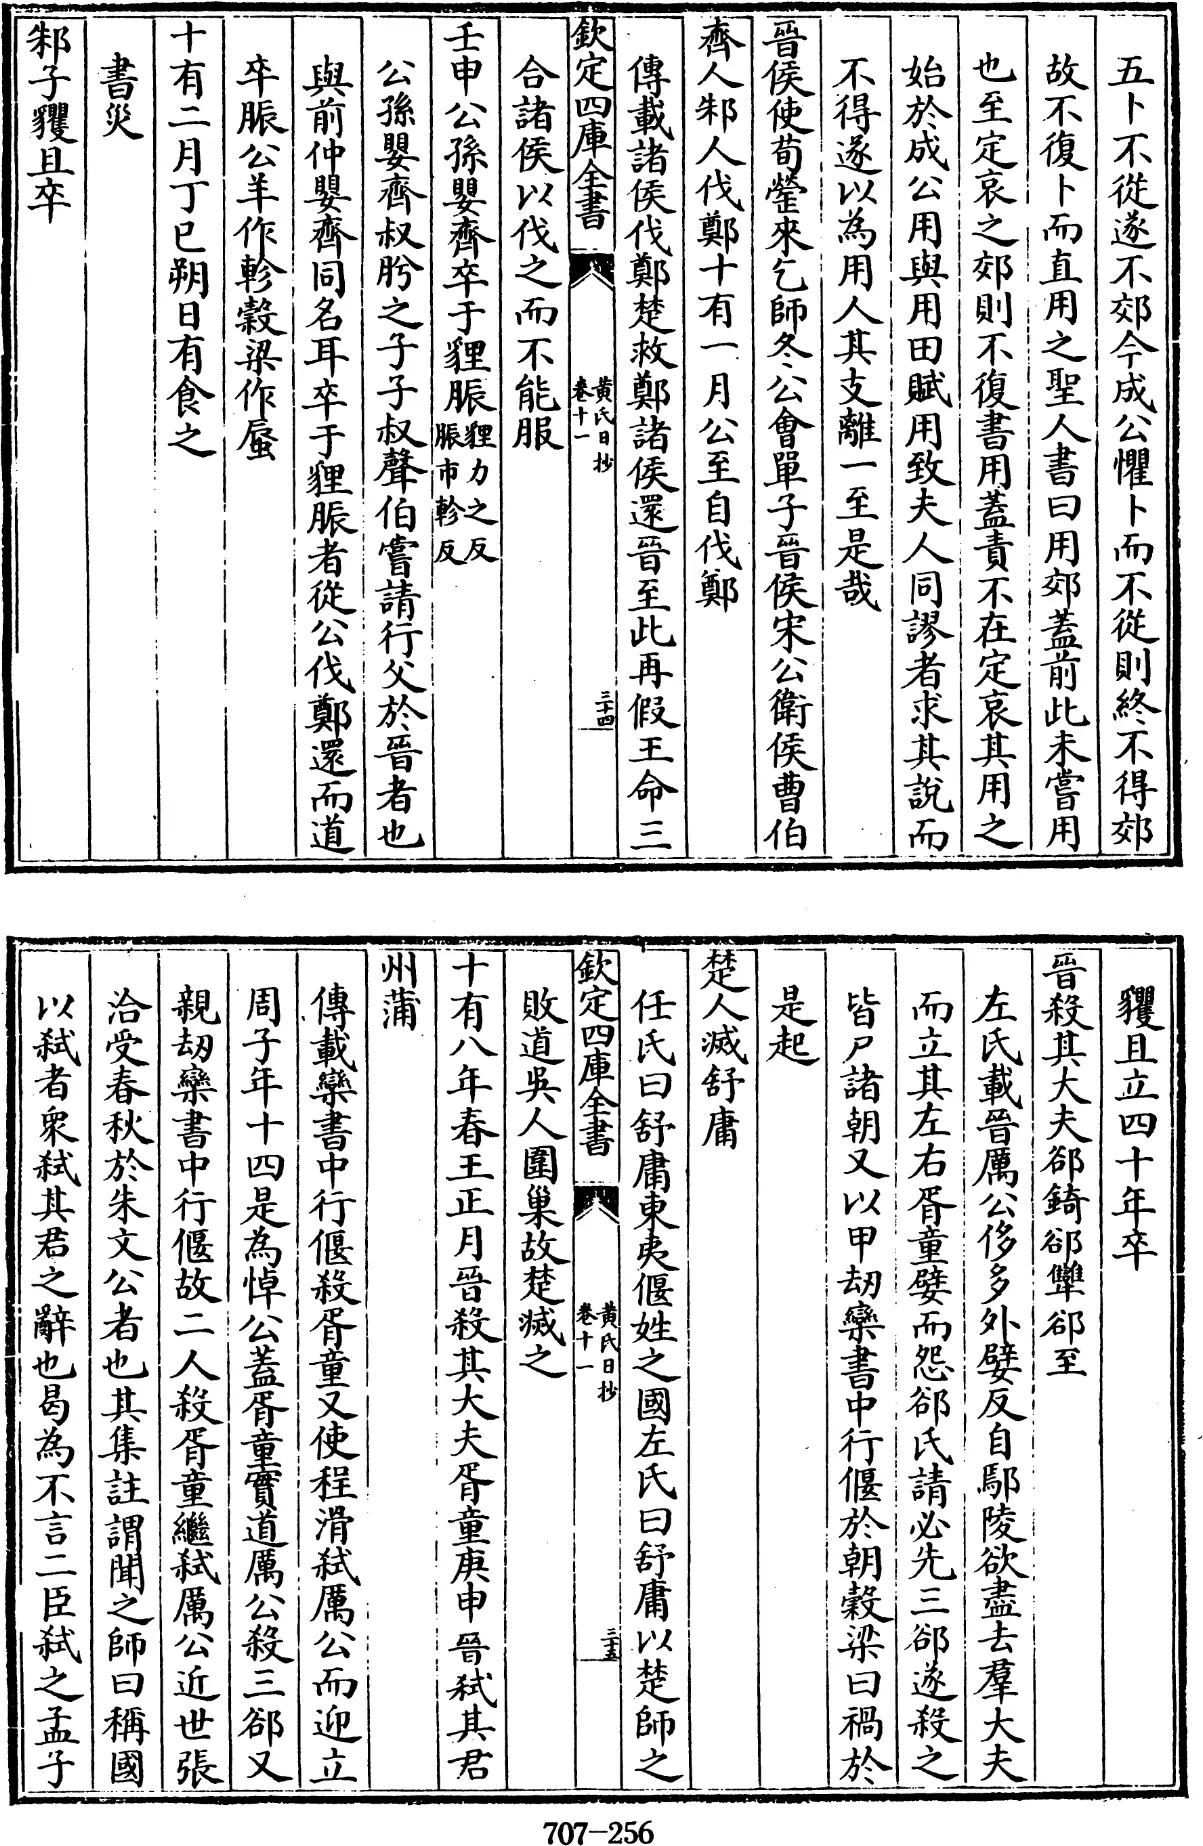 五卜不從遂不郊今成公懼卜而不從則終不得郊
故不復卜而直用之聖人書曰用郊蓋前此未嘗用
也至定哀之郊則不復書用蓋責不在定哀其用之
始於成公用與用田賦用致夫人同謬者求其說而
不得遂以為用人其支離一至是哉
晉侯使荀罃來乞師冬公會單子晉侯宋公衛侯曹伯
齊人邾人伐鄭十有一月公至自伐鄭
傳載諸侯伐鄭楚救鄭諸侯還晉至此再假王命三
欽定四庫全書
黄氏日抄
卷十一
三十四
合諸侯以伐之而不能服
壬申公孫嬰齊卒于貍脤貍力之反
脤市軫反
公孫嬰齊叔肸之子子叔聲伯嘗請行父於晉者也
與前仲嬰齊同名耳卒于貍脤者從公伐鄭還而道
卒脤公羊作軫穀梁作蜃
十有二月丁巳朔日有食之
書災
邾子貜且卒
貜且立四十年卒
晉殺其大夫郤錡郤犫郤至
左氏載晉厲公侈多外嬖反自鄢陵欲盡去羣大夫
而立其左右胥童嬖而怨郤氏請必先三郤遂殺之
皆尸諸朝又以甲劫欒書中行偃於朝穀梁曰禍於
是起
楚人滅舒庸
任氏曰舒庸東夷偃姓之國左氏曰舒庸以楚師之
欽定四庫全書
黄氏日抄
卷十一
三十五
敗道吳人圍巢故楚滅之
十有八年春王正月晉殺其大夫胥童庚申晉弑其君
州蒲
傳載欒書中行偃殺胥童又使程滑弑厲公而迎立
周子年十四是為悼公蓋胥童實道厲公殺三郤又
親劫欒書中行偃故二人殺胥童繼弑厲公近世張
洽受春秋於朱文公者也其集註謂聞之師曰稱國
以弑者衆弑其君之辭也曷為不言二臣弑之孟子
707-256